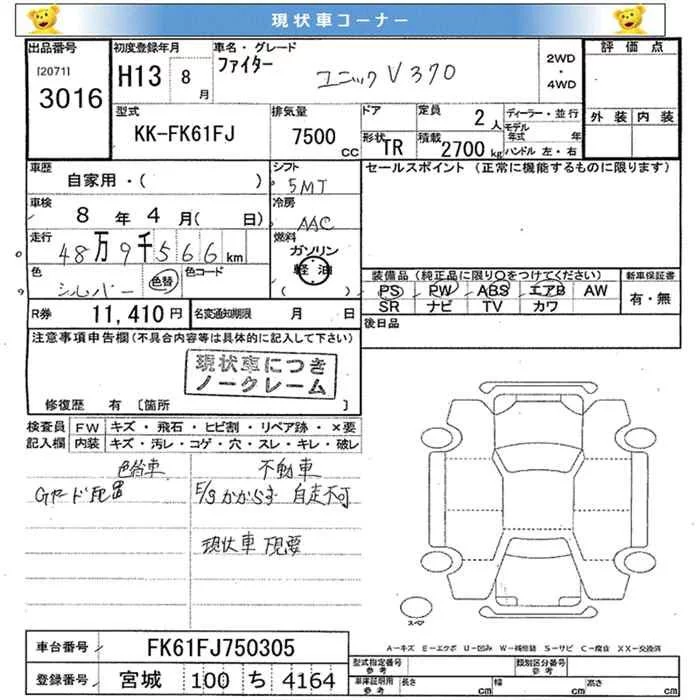 現状車コーナー
出品番号
[2071]
3016
初度登録年月
H13 8 月
車名・グレード
ファイター
ユニック V370
2WD
・
4WD
評価点
外装 内装
型式
KK-FK61FJ
排気量
7500 CC
ドア
形状 TR
定員 2 人
積載 2700 kg
ディーラー・並行
モデル年式 年
ハンドル 左・右
車歴
自家用・( )
シフト
5MT
セールスポイント(正常に機能するものに限ります)
車検
8 年 4 月( 日)
冷房
AAC
走行
48万9千566 km
燃料
ガソリン
軽油
( )
色
シルバー 色替
色コード
装備品(純正品に限り○をつけてください)
PS PW ABS エアB AW
SR ナビ TV カワ
新車保証書
有・無
R券 11,410 円
名変通知期限 月 日
後日品
注意事項申告欄(不具合内容等は具体的に記入して下さい)
現状車につき
ノークレーム
修復歴 有 〔箇所 〕
検査員
記入欄
FW キズ・飛石・ヒビ割・リペア跡・×要
内装 キズ・汚レ・コゲ・穴・スレ・キレ・破レ
色替車 不動車
E/gかからず 自走不可
現状車 現要
スペア
A-キズ E-エクボ U-凹み W-補修跡 S-サビ C-腐食 XX-交換済
車台番号 FK61FJ750305
登録番号 宮城 100 ち 4164
型式指定番号
参考
類別区分番号
参考
車庫証明用
参考
長さ cm 幅 cm 高さ cm